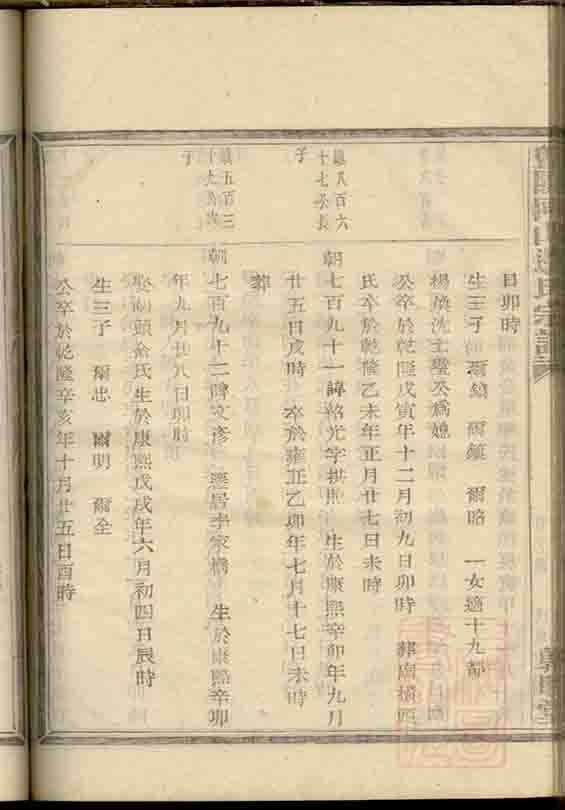 日卯時
生三子 爾鎮 爾鎮 爾略 一女適十九都
楊 沈主璧公爲媳
公卒於乾隆戊寅年十二月初九日卯時 葬 橫西
氏卒於乾隆乙未年正月廿七日未時
鎮八百六
十七公長
子
朝七百九十一諱 光字拱照 生於康熙辛卯年九月
廿五日戌時 卒於雍正乙卯年七月十七日未時
葬
鎮五百三
十七公次
子
朝七百九十二諱文彥 遷居李家橋 生於康熙辛卯
年九月廿八日卯時
娶 頭俞氏生於康熙戊戌年六月初四日辰時
生三子 爾忠 爾明 爾全
公卒於乾隆辛亥年十月廿五日酉時
氏宗譜